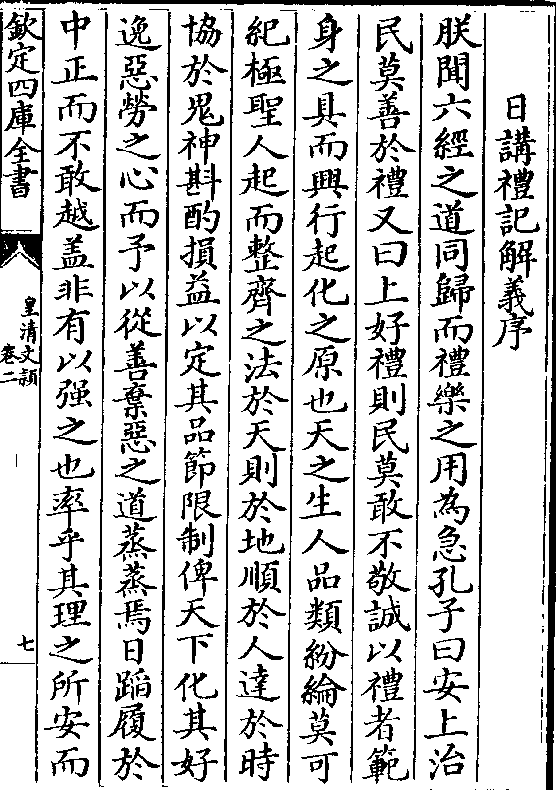 日講禮記解義序
朕聞六經之道同歸而禮樂之用為急孔子曰安上治
民莫善於禮又曰上好禮則民莫敢不敬誠以禮者範
身之具而興行起化之原也天之生人品類紛綸莫可
紀極聖人起而整齊之法於天則於地順於人達於時
協於鬼神斟酌損益以定其品節限制俾天下化其好
逸惡勞之心而予以從善棄惡之道蒸蒸焉日蹈履於
中正而不敢越盖非有以强之也率乎其理之所安而
欽定四庫全書
皇清文頴
卷二
七